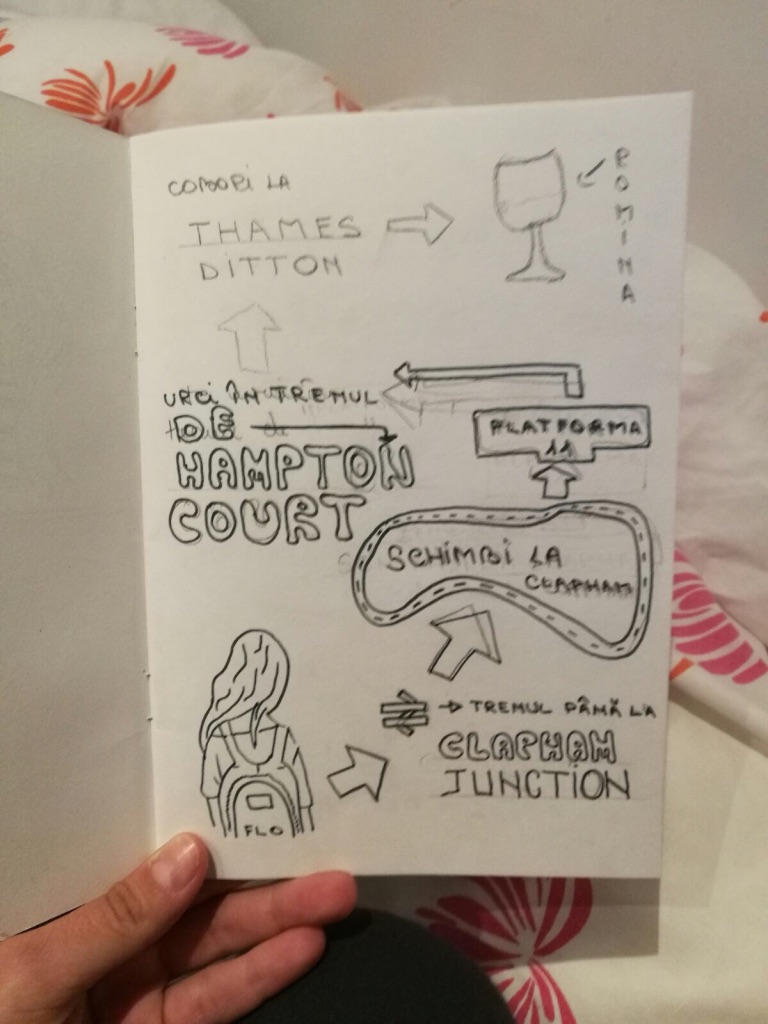 COBORI LA
THAMES
DITTON
ROMINA
URCI ÎN TRENUL
DE
HAMPTON
COURT
PLATFORMA
11
SCHIMBI LA
CLAPHAM
TRENUL PÂNĂ LA
CLAPHAM
JUNCTION
FLO